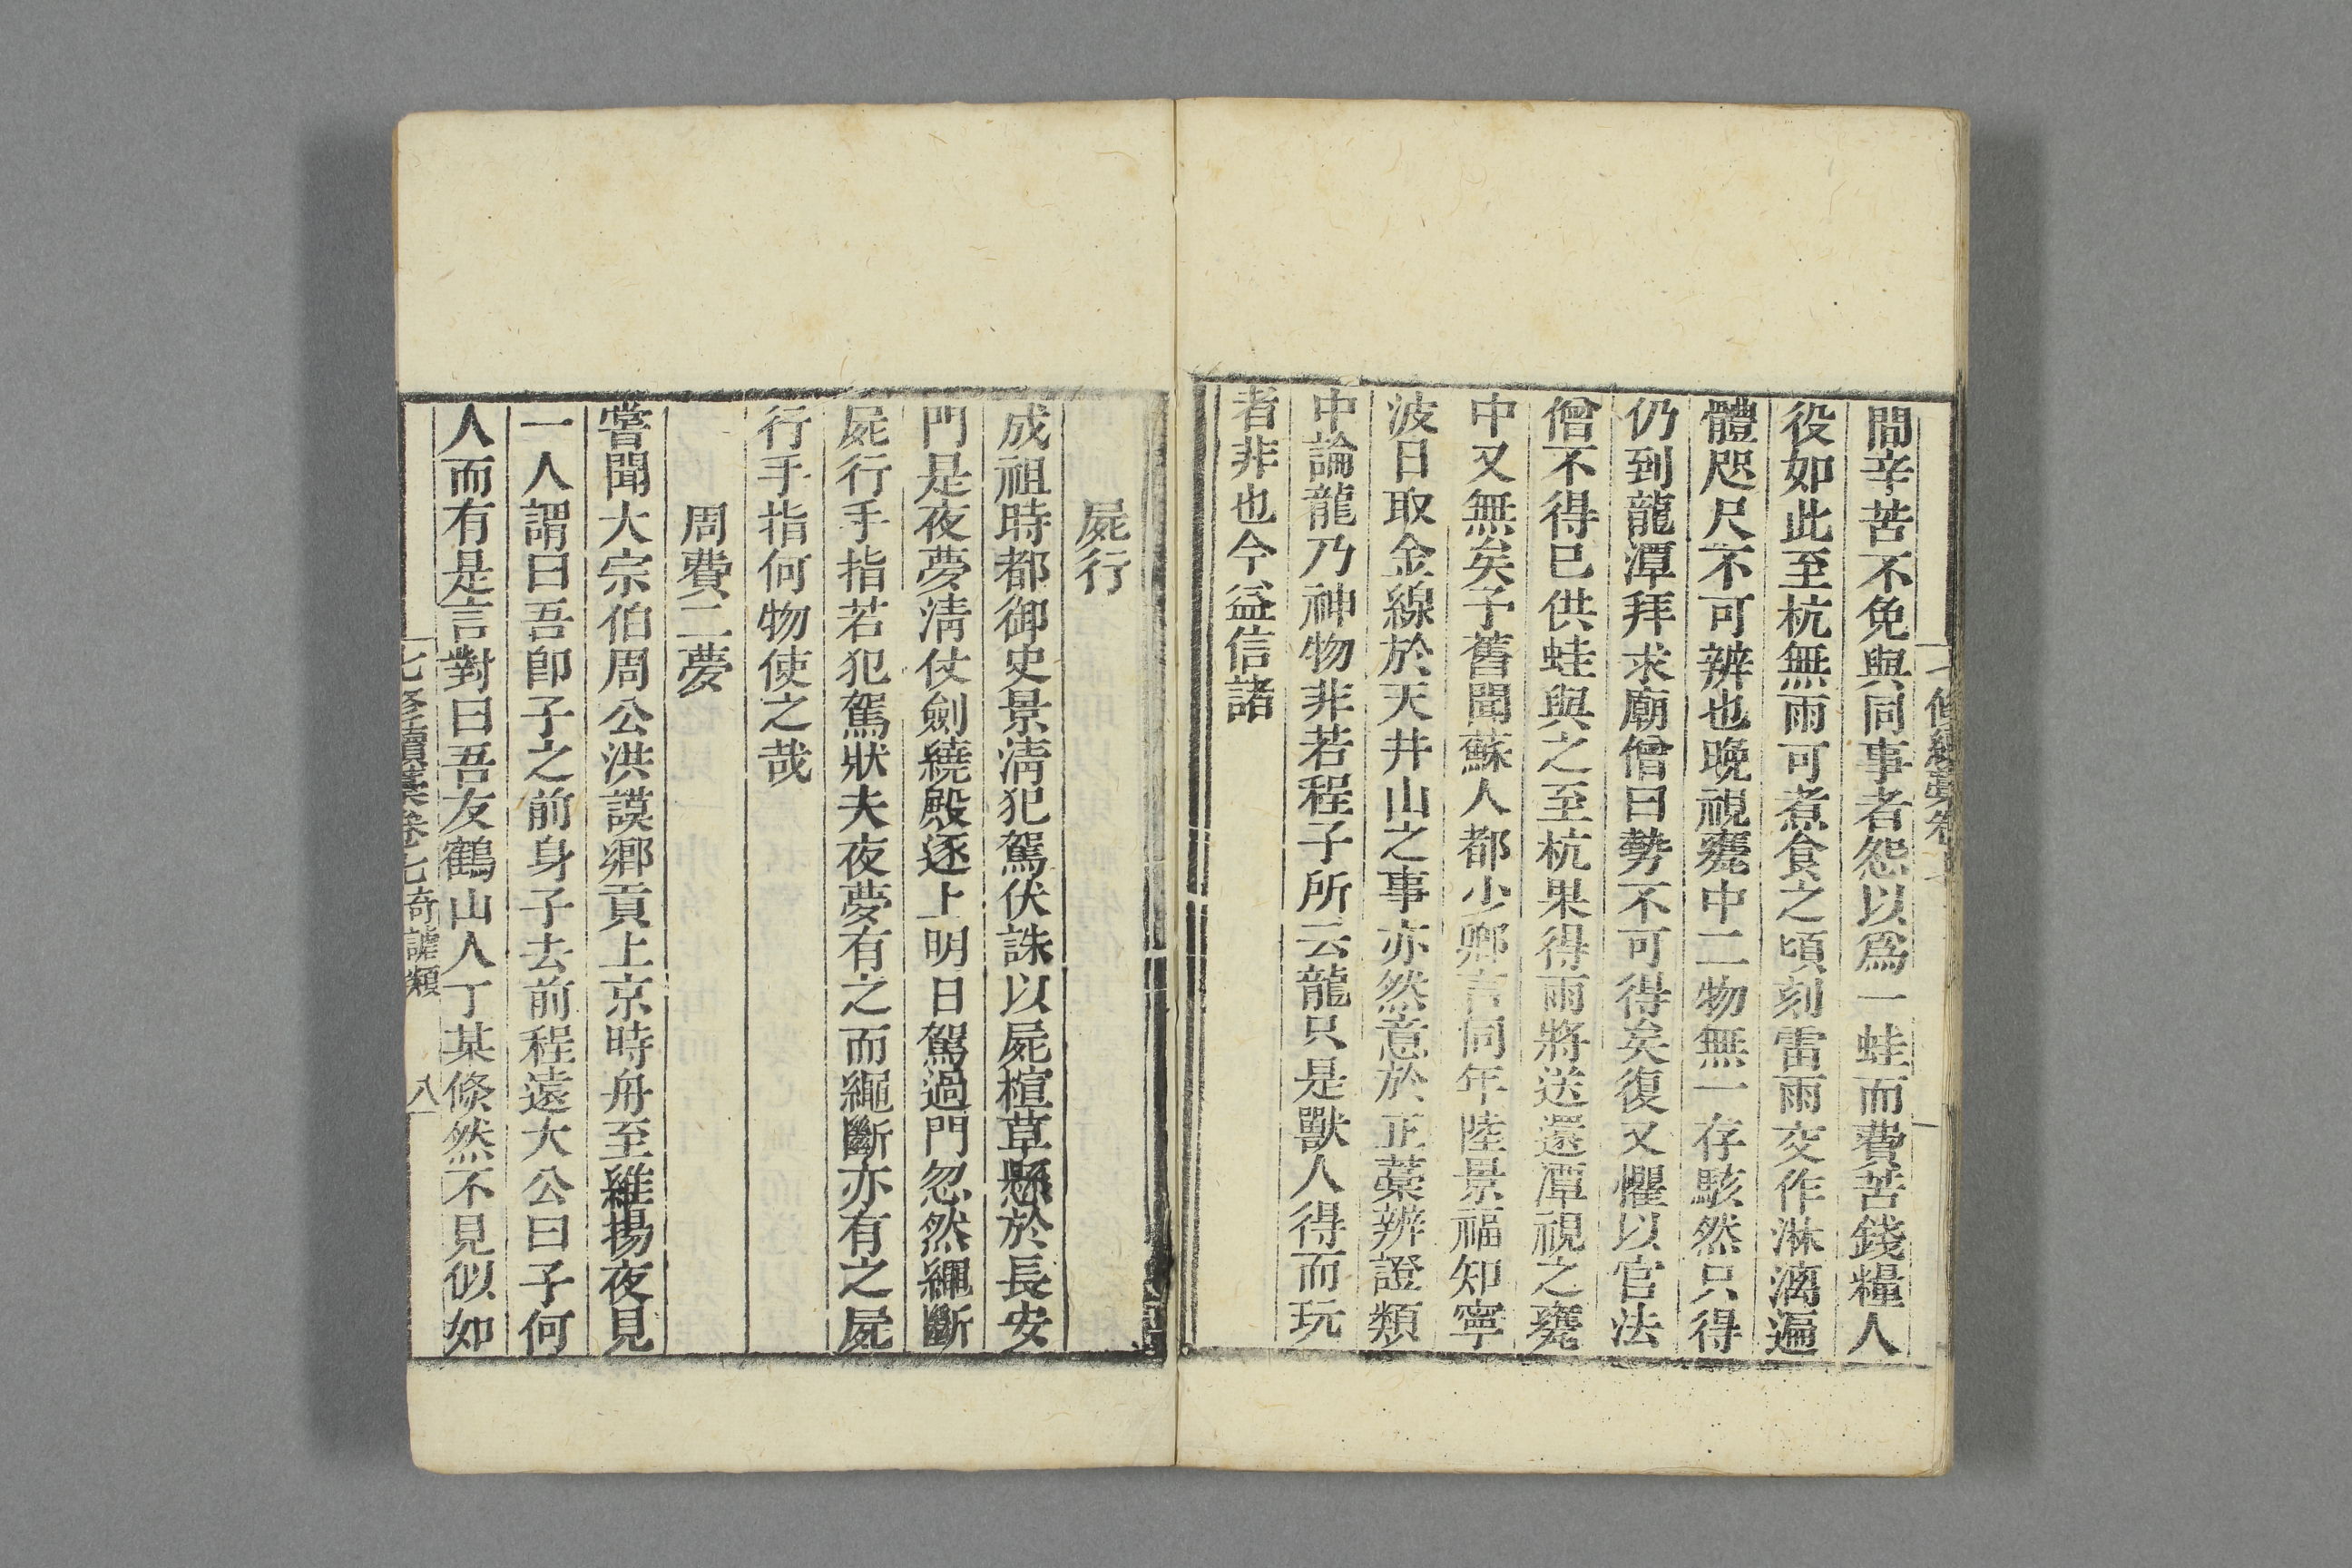 間辛苦不免與同事者怨以爲一蛙而費苦錢糧人
役如此至杭無雨可煮食之頃刻雷雨交作淋漓遍
體咫尺不可辨也晚視甕中二物無一存駭然只得
仍到龍潭拜求廟僧曰勢不可得矣復又懼以官法
僧不得已供蛙與之至杭果得雨將送還潭視之甕
中又無矣予舊聞蘇人都少卿言同年陸景福知寧
波日取金線於天井山之事亦然意於正藁辨證類
中論龍乃神物非若程子所云龍只是獸人得而玩
者非也今益信諸
屍行
成祖時都御史景淸犯駕伏誅以屍楦草懸於長安
門是夜夢淸仗劍繞殿逐上明日駕過門忽然繩斷
屍行手指若犯駕狀夫夜夢有之而繩斷亦有之屍
行手指何物使之哉
周費二夢
嘗聞大宗伯周公洪謨鄉貢上京時舟至維揚夜見
一人謂曰吾卽子之前身子去前程遠大公曰子何
人而有是言對曰吾友鶴山人丁某倏然不見似如
七修續藁卷七奇謔類 八